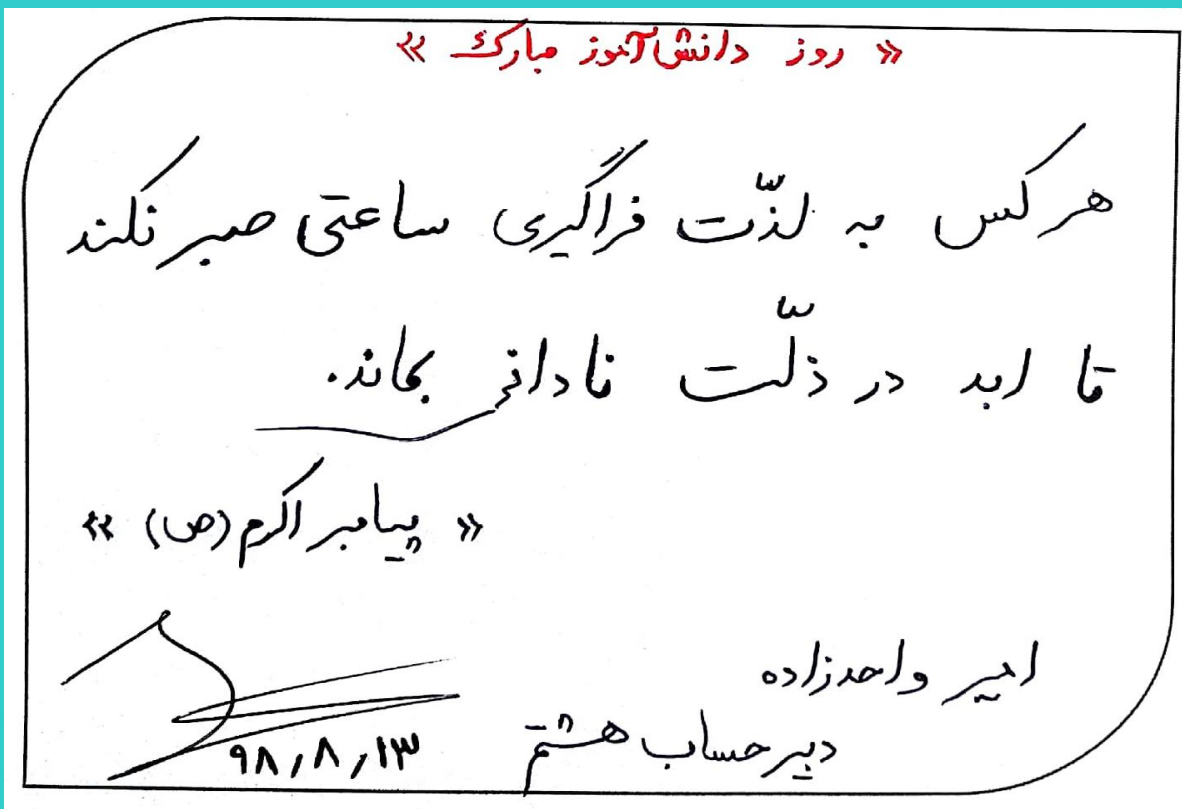 « روز دانش‌آموز مبارک »
هر کس به لذّت فراگیری ساعتی صبر نکند
تا ابد در ذلّت نادانی بماند.
« پیامبر اکرم (ص) »
امیر واحدزاده
دبیر حساب هشتم
۹۸٫۸٫۱۳